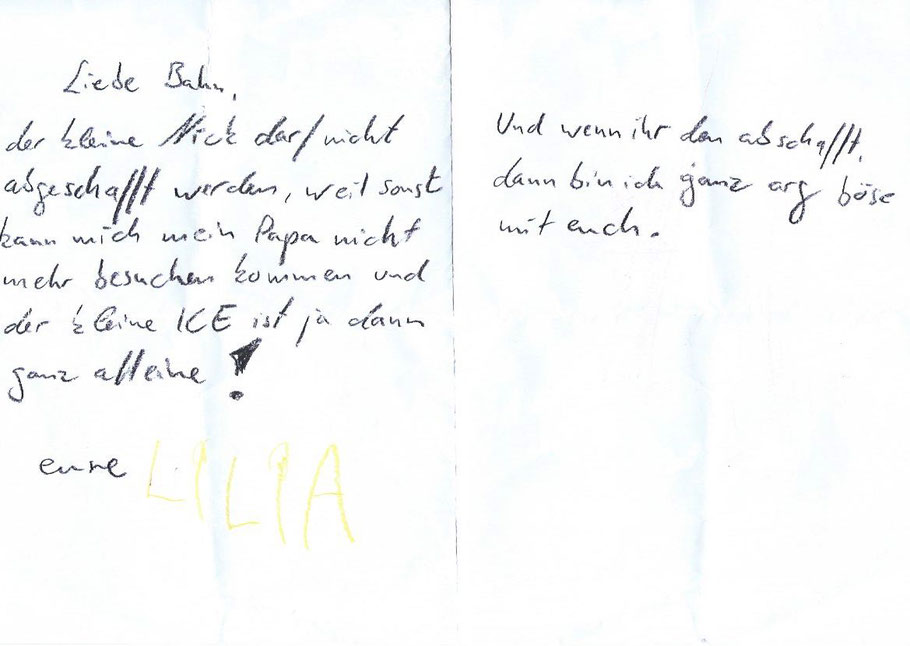 Liebe Bahn,
der kleine Nick darf nicht
abgeschafft werden, weil sonst
kann mich mein Papa nicht
mehr besuchen kommen und
der kleine ICE ist ja dann
ganz alleine!
eure LILIA
Und wenn ihr den abschafft,
dann bin ich ganz arg böse
mit euch.